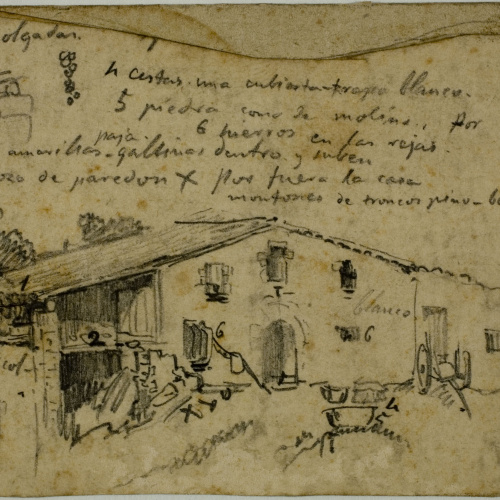 olgadas.
4 cestas. una cubierta trapo blanco.
5 piedra como de molino., Por
paja. 6 hierros en las rejas.
amarillas-gallinas dentro y suben
ozo de paredon X Por fuera la casa
montones de troncos pino-
1
2
blanco
6
6
col-
X
4
5